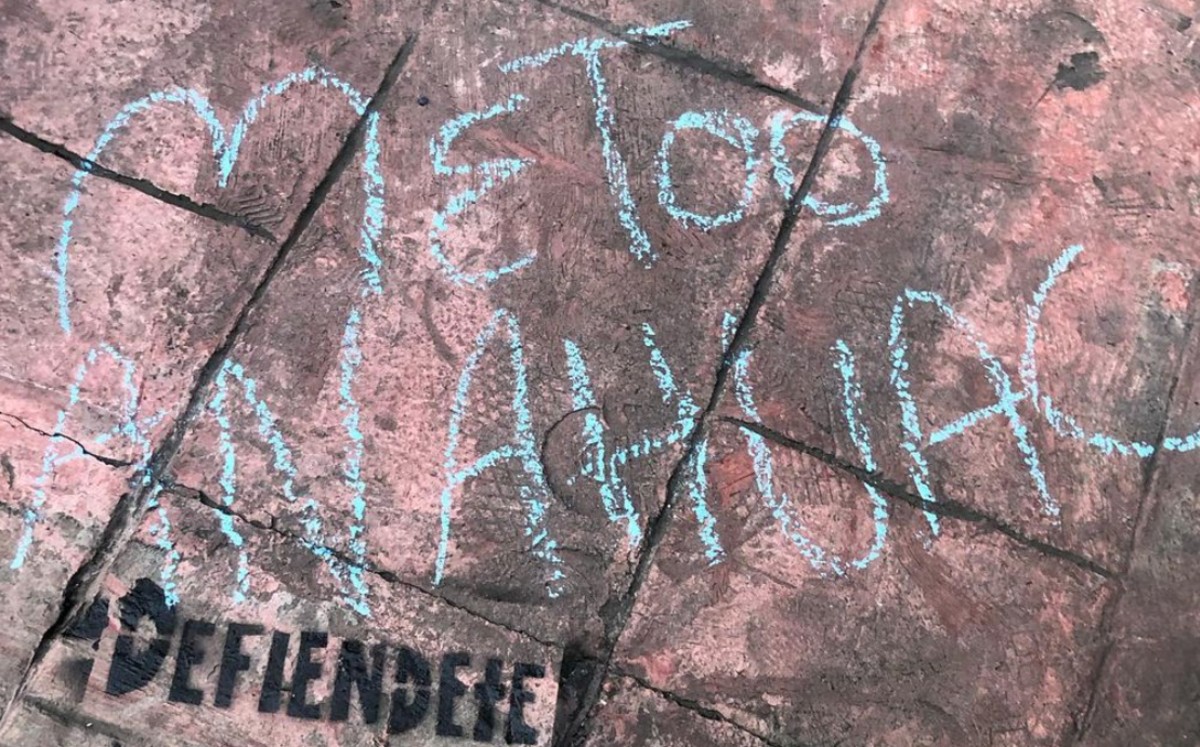 METOO
ANAHUAC
DEFIENDEtE